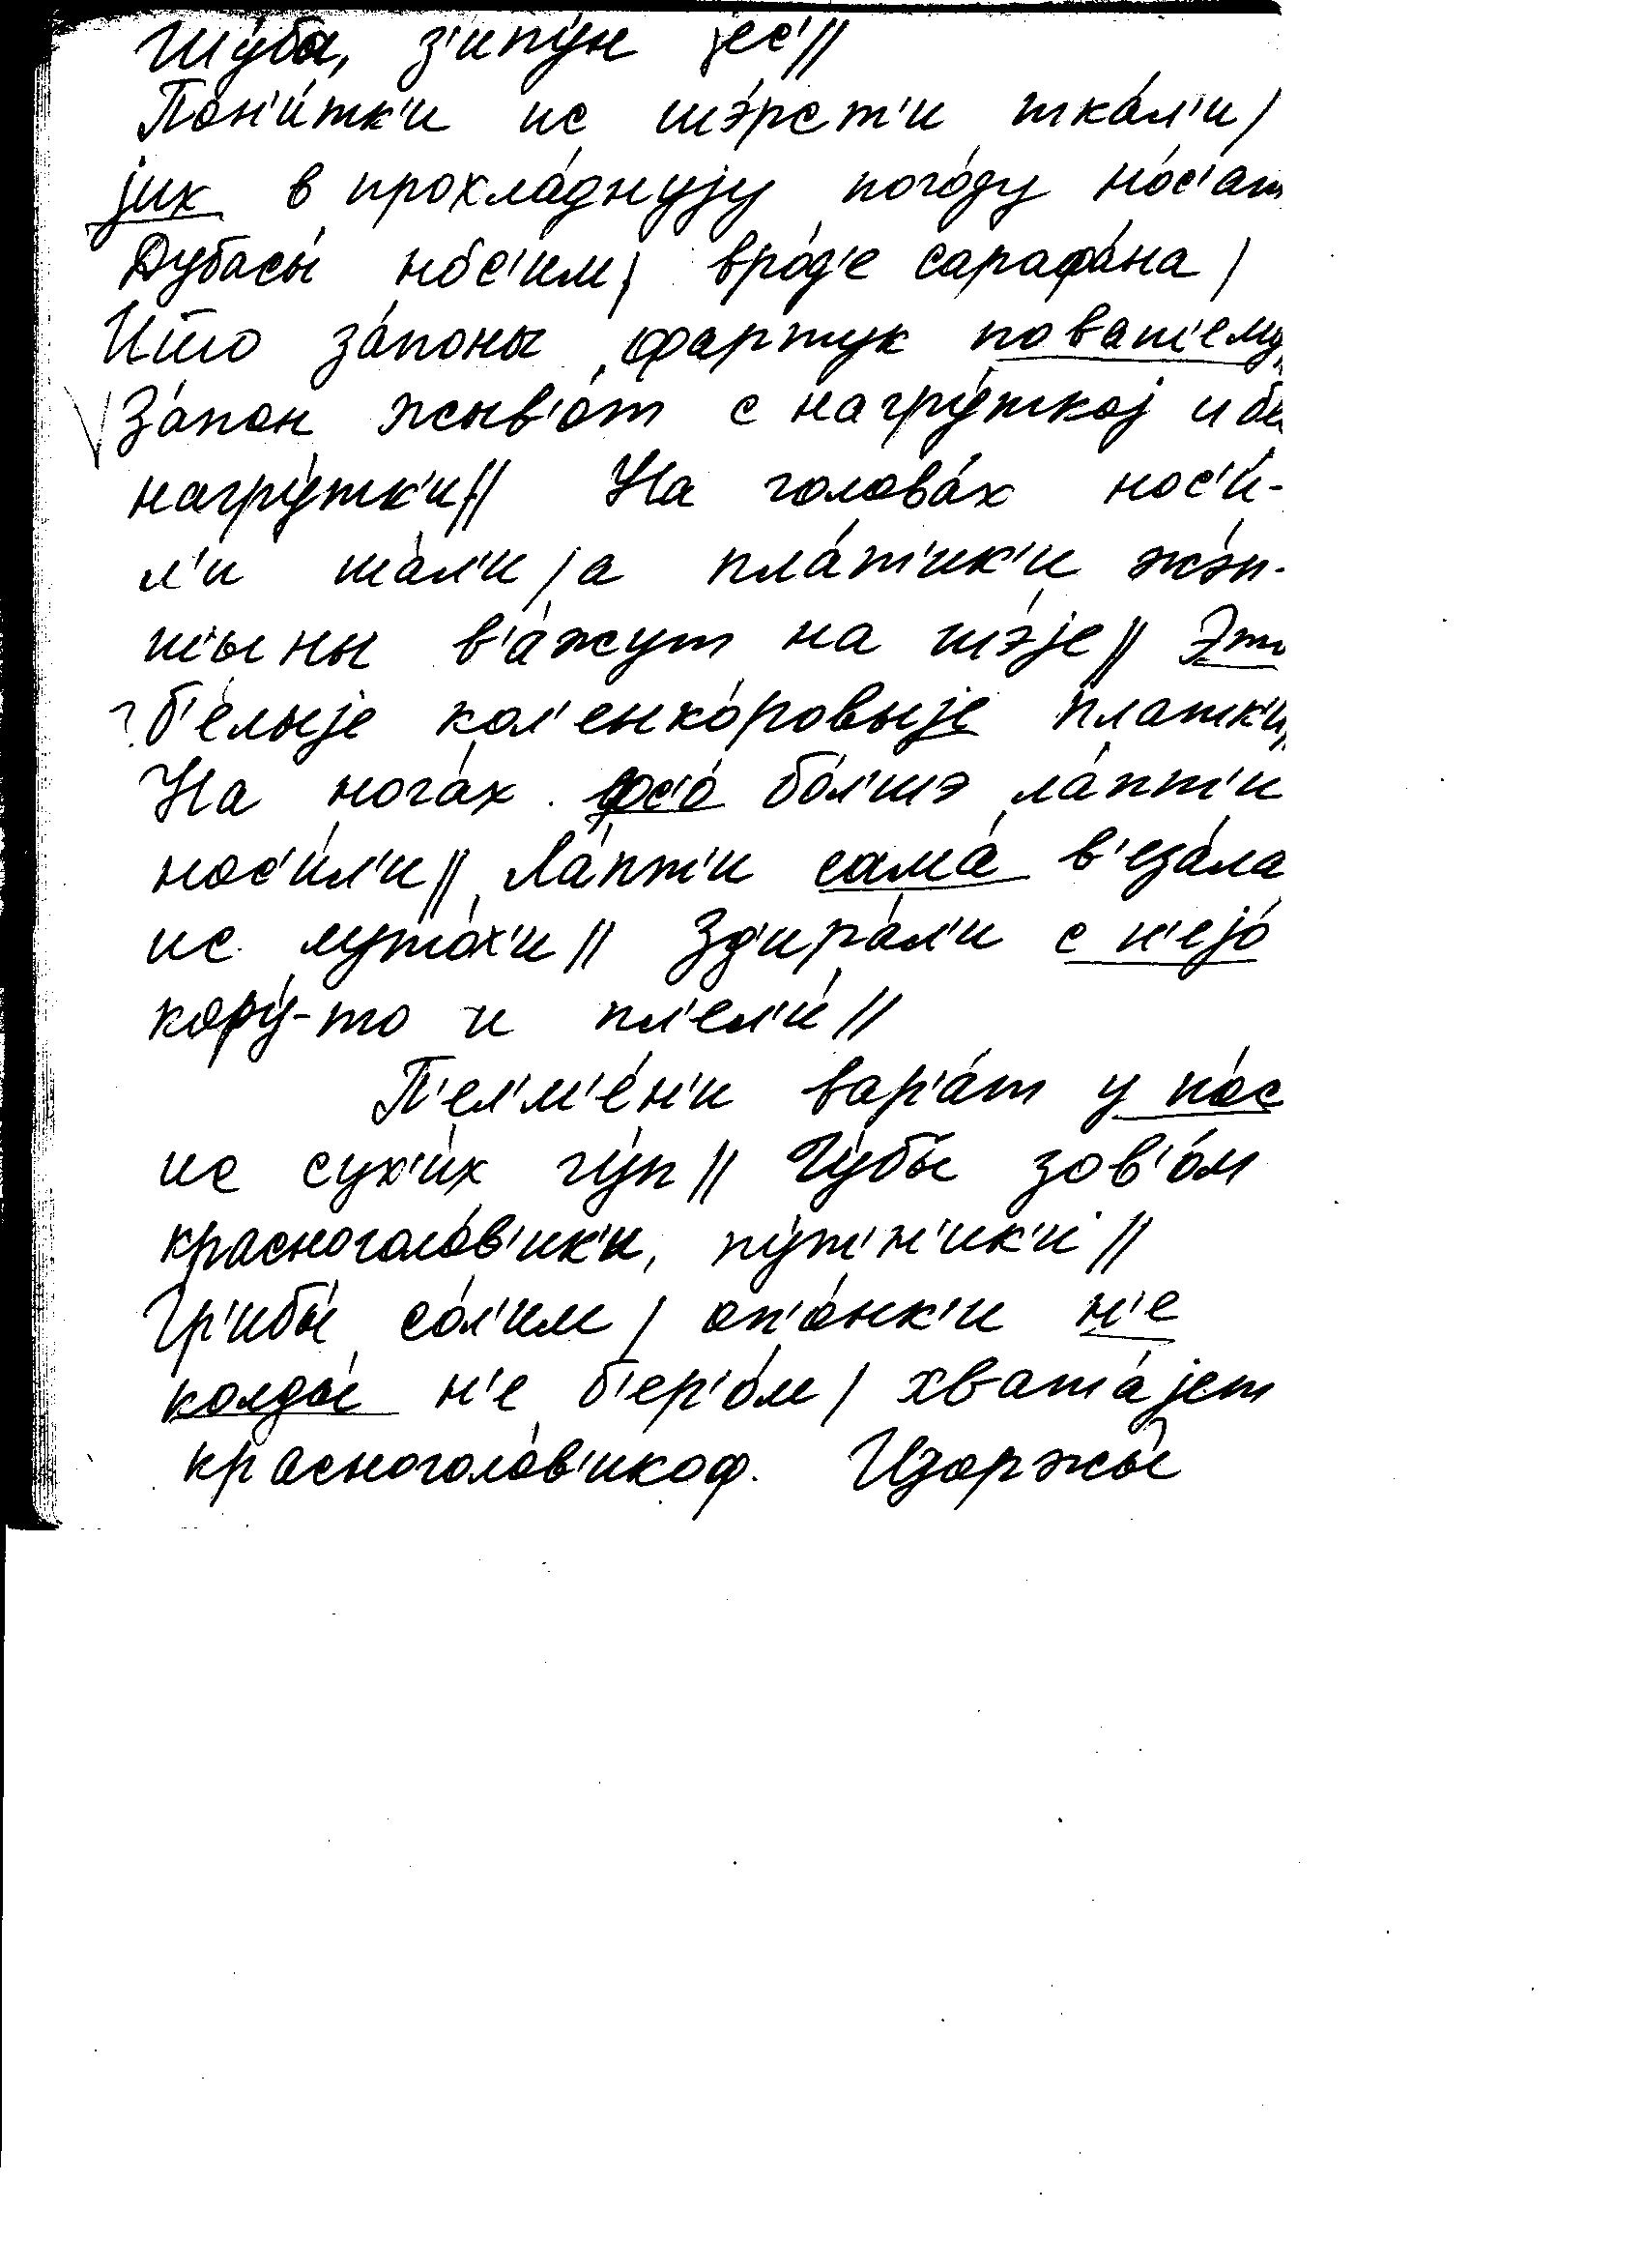 Шу́ба, з'ипу́н јес'//
Пон'и́тк'и ис шэ́рст'и тка́л'и/
јих в прохла́днују пого́ду но́с'ат
Дубасы́ но́с'им/ вро́д'е сарафа́на/
за́поны фартук поваш'ему
За́пон жыв'о́т с нагру́ткој и бе
нагру́тк'и// На голова́х нос'и́-
л'и ша́л'и/ а пла́т'ик'и жэ́н-
шыны в'а́жут на шэ́је// Это
б'е́лыје кол'енко́ровыје платк'и//
На нога́х фс'о́ бо́л'шэ ла́пт'и
нос'и́л'и// Ла́пт'и сама́ в'еза́ла
ис муто́х'и// Зд'ира́л'и с н'ејо́
кору́-то и пл'ел'и́//
П'ел'м'е́н'и вар'а́т у на́с
ис сух'и́х гу́п// Гу́бы зов'о́м
красноголо́в'ик'и, пу́т'н'ик'и//
Гр'ибы́ со́л'им/ оп'о́нк'и н'е
колды́ н'е б'ер'о́м/ хвата́јет
красноголо́в'икоф. Изоржы́